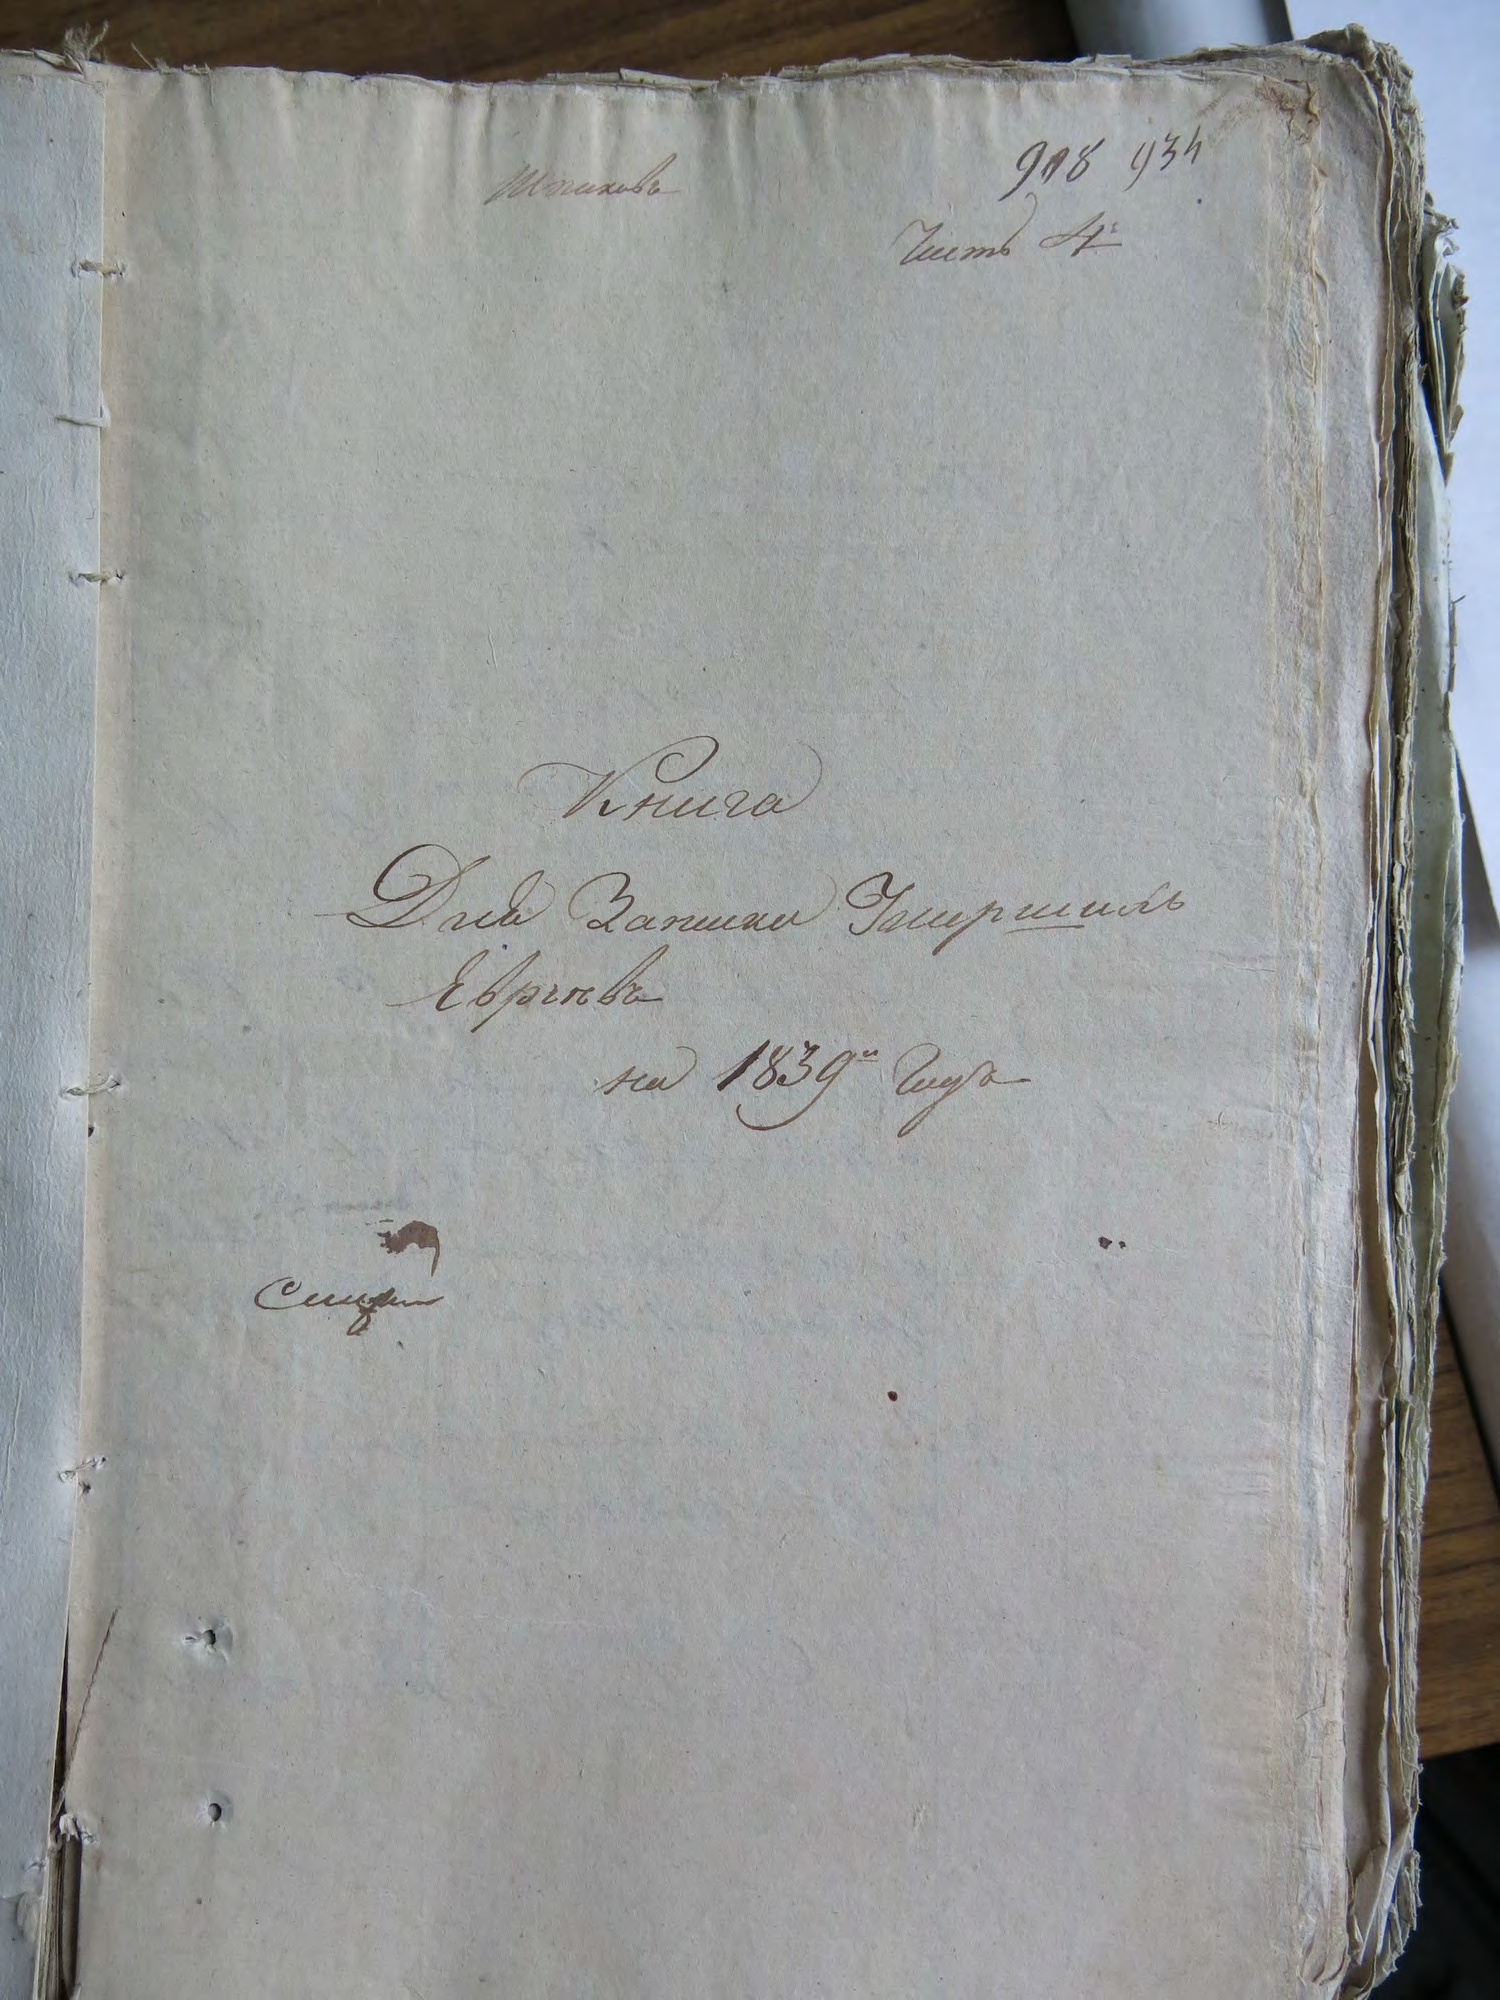 Шпиковъ
918 934
Часть 4я
Книга
Для Записки Умершихъ
Евреевъ
на 1839й Годъ